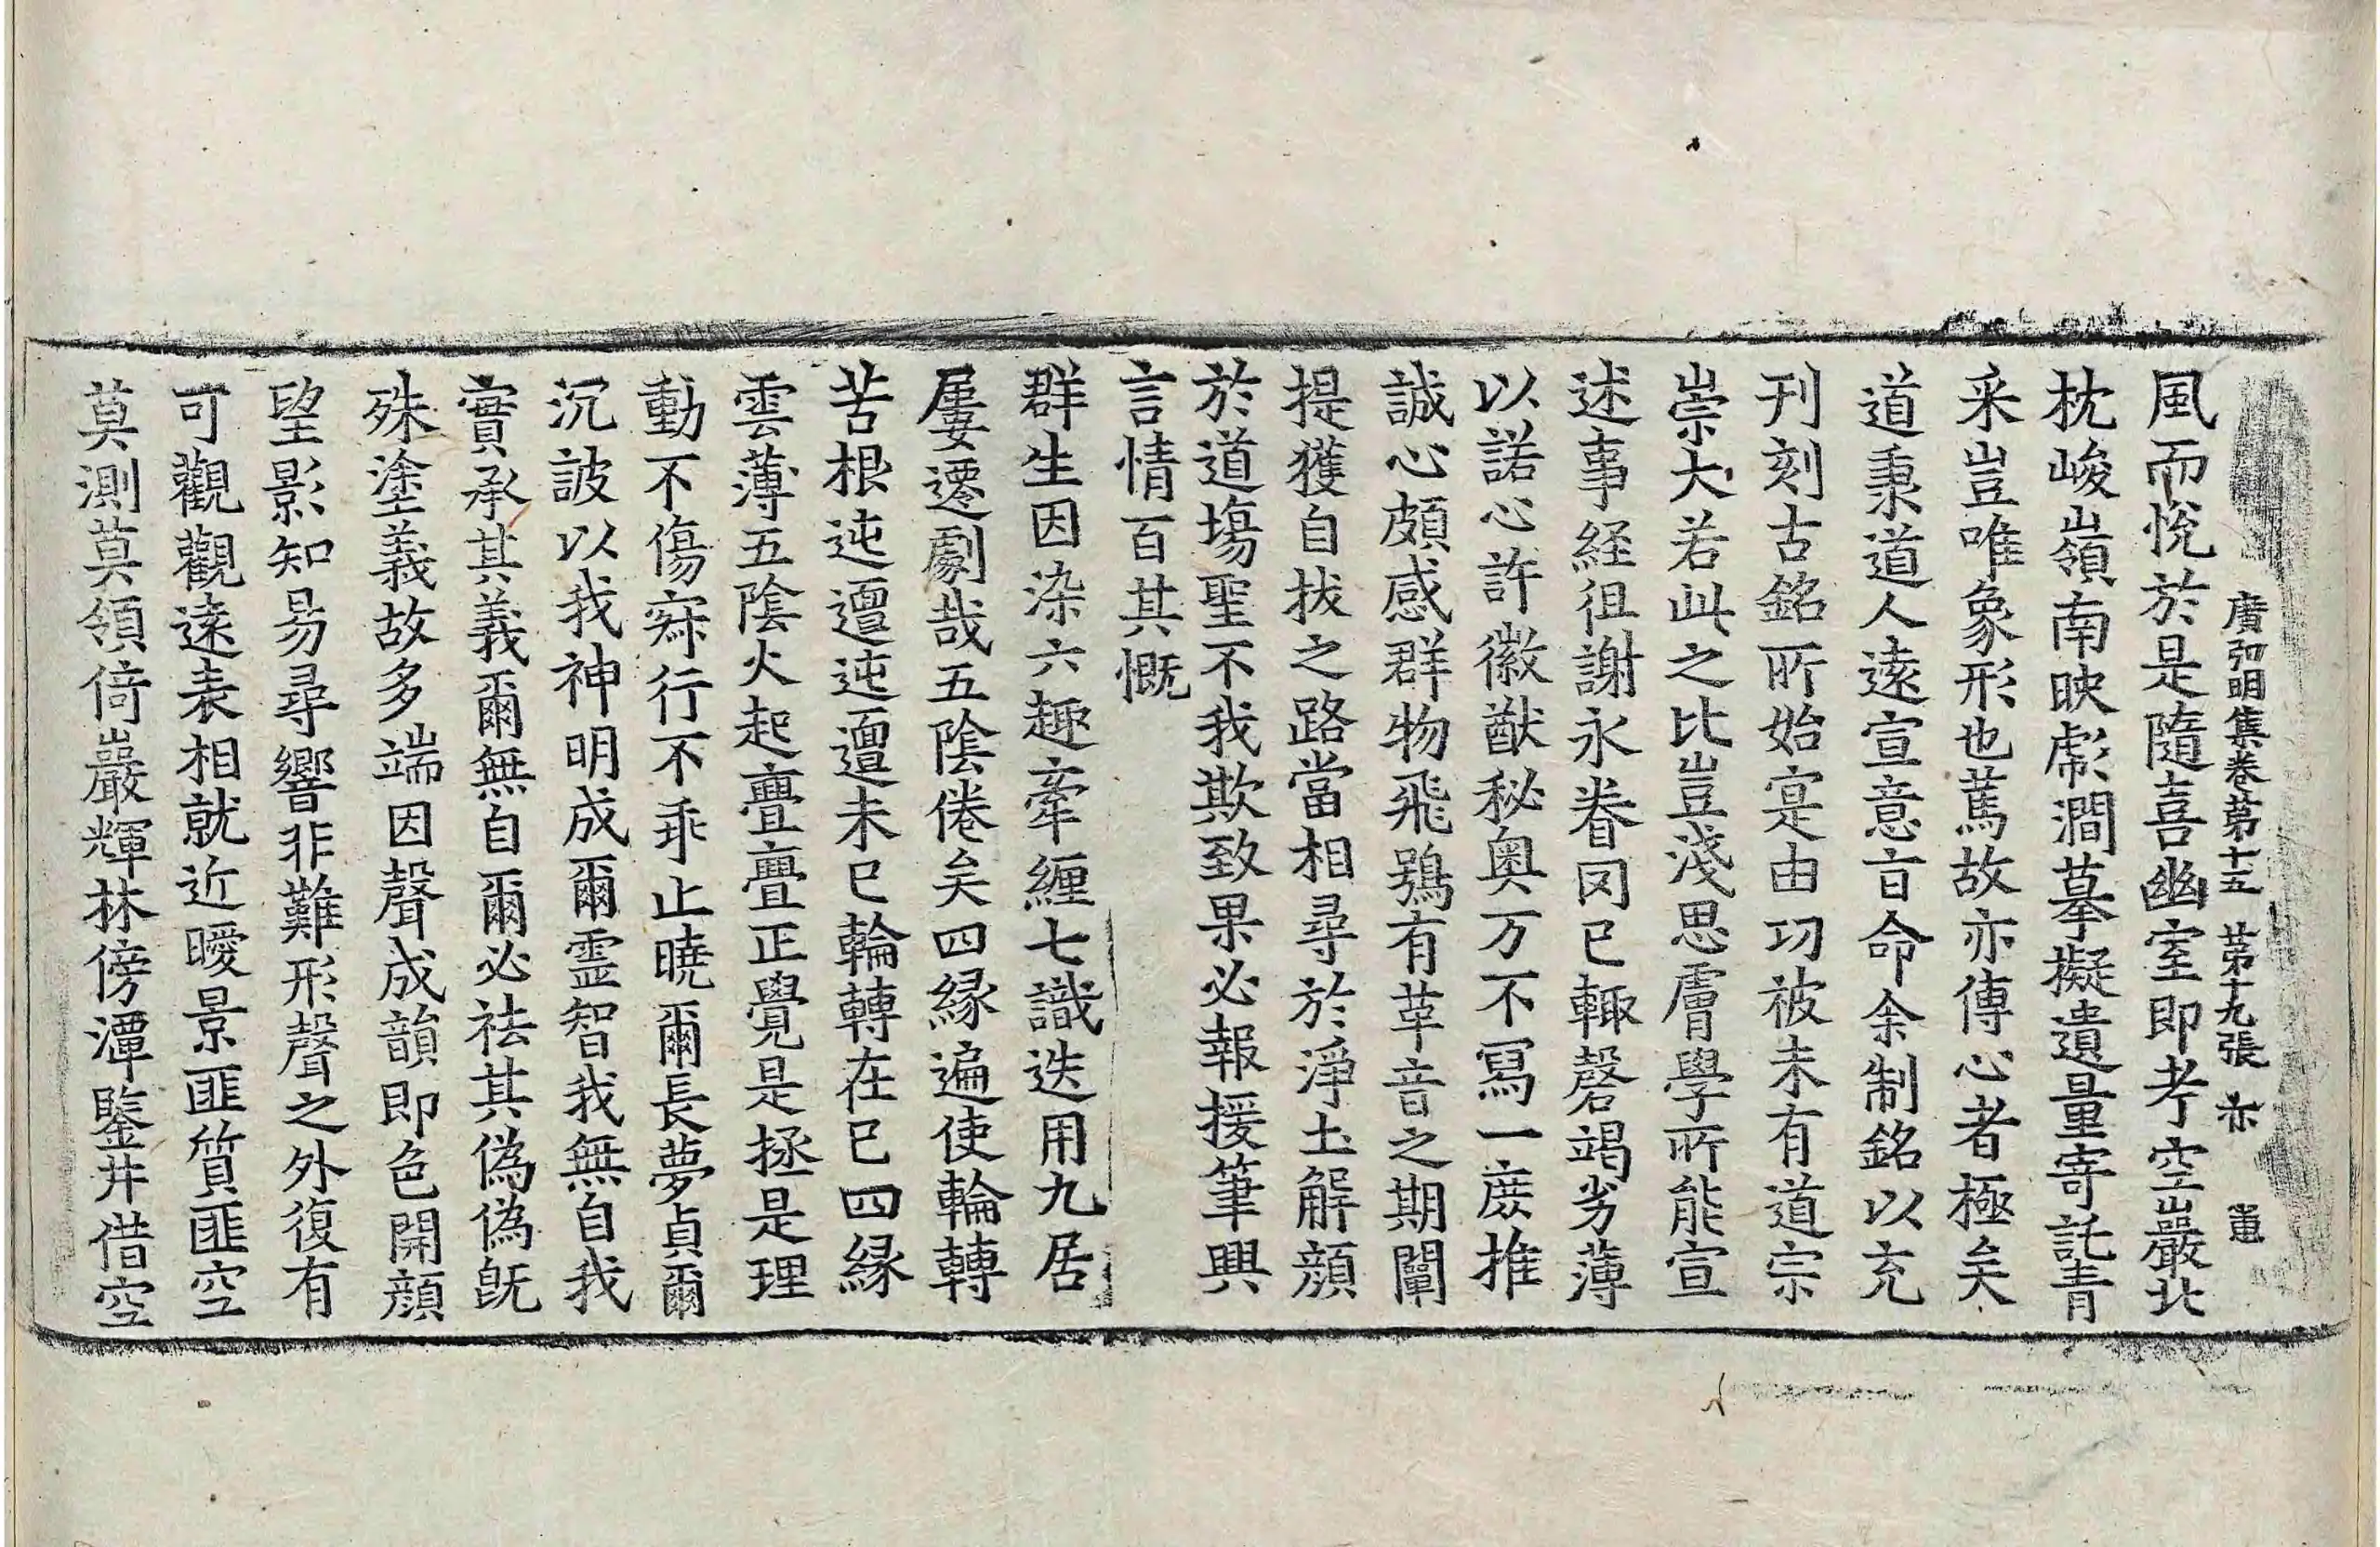 廣弘明集卷第十五　第十九張　亦　
風而悅於是隨喜幽室即考空巖北
枕峻嶺南映滮澗摹擬遺量寄託青
采豈唯象形也萬故亦傳心者極矣
道秉道人遠宣意旨命余制銘以充
刊刻古銘所始寔由功被未有道宗
崇大若此之比豈淺思膚學所能宣
述事経徂謝永眷罔已輙磬竭劣薄
以諾心許徽猷秘奧万不寫一庶推
誠心頗感群物飛鴞有革音之期闡
提獲自拔之路當相尋於淨土解顏
於道場聖不我欺致果必報援筆興
言情百其慨
群生因染六趣牽纏七識迭用九居
屢遷劇哉五陰倦矣四緣遍使輪轉
苦根迍邅迍邅未已輪轉在已四緣
雲薄五陰火起亹亹正覺是拯是理
動不傷寂行不乖止曉爾長夢貞爾
沉詖以我神明成爾靈智我無自我
實承其義爾無自爾必祛其偽偽旣
殊塗義故多端因聲成韻即色開顏
望影知易尋響非難形聲之外復有
可觀觀遠表相就近曖景匪質匪空
莫測莫領倚巖輝林傍潭鑒井借空